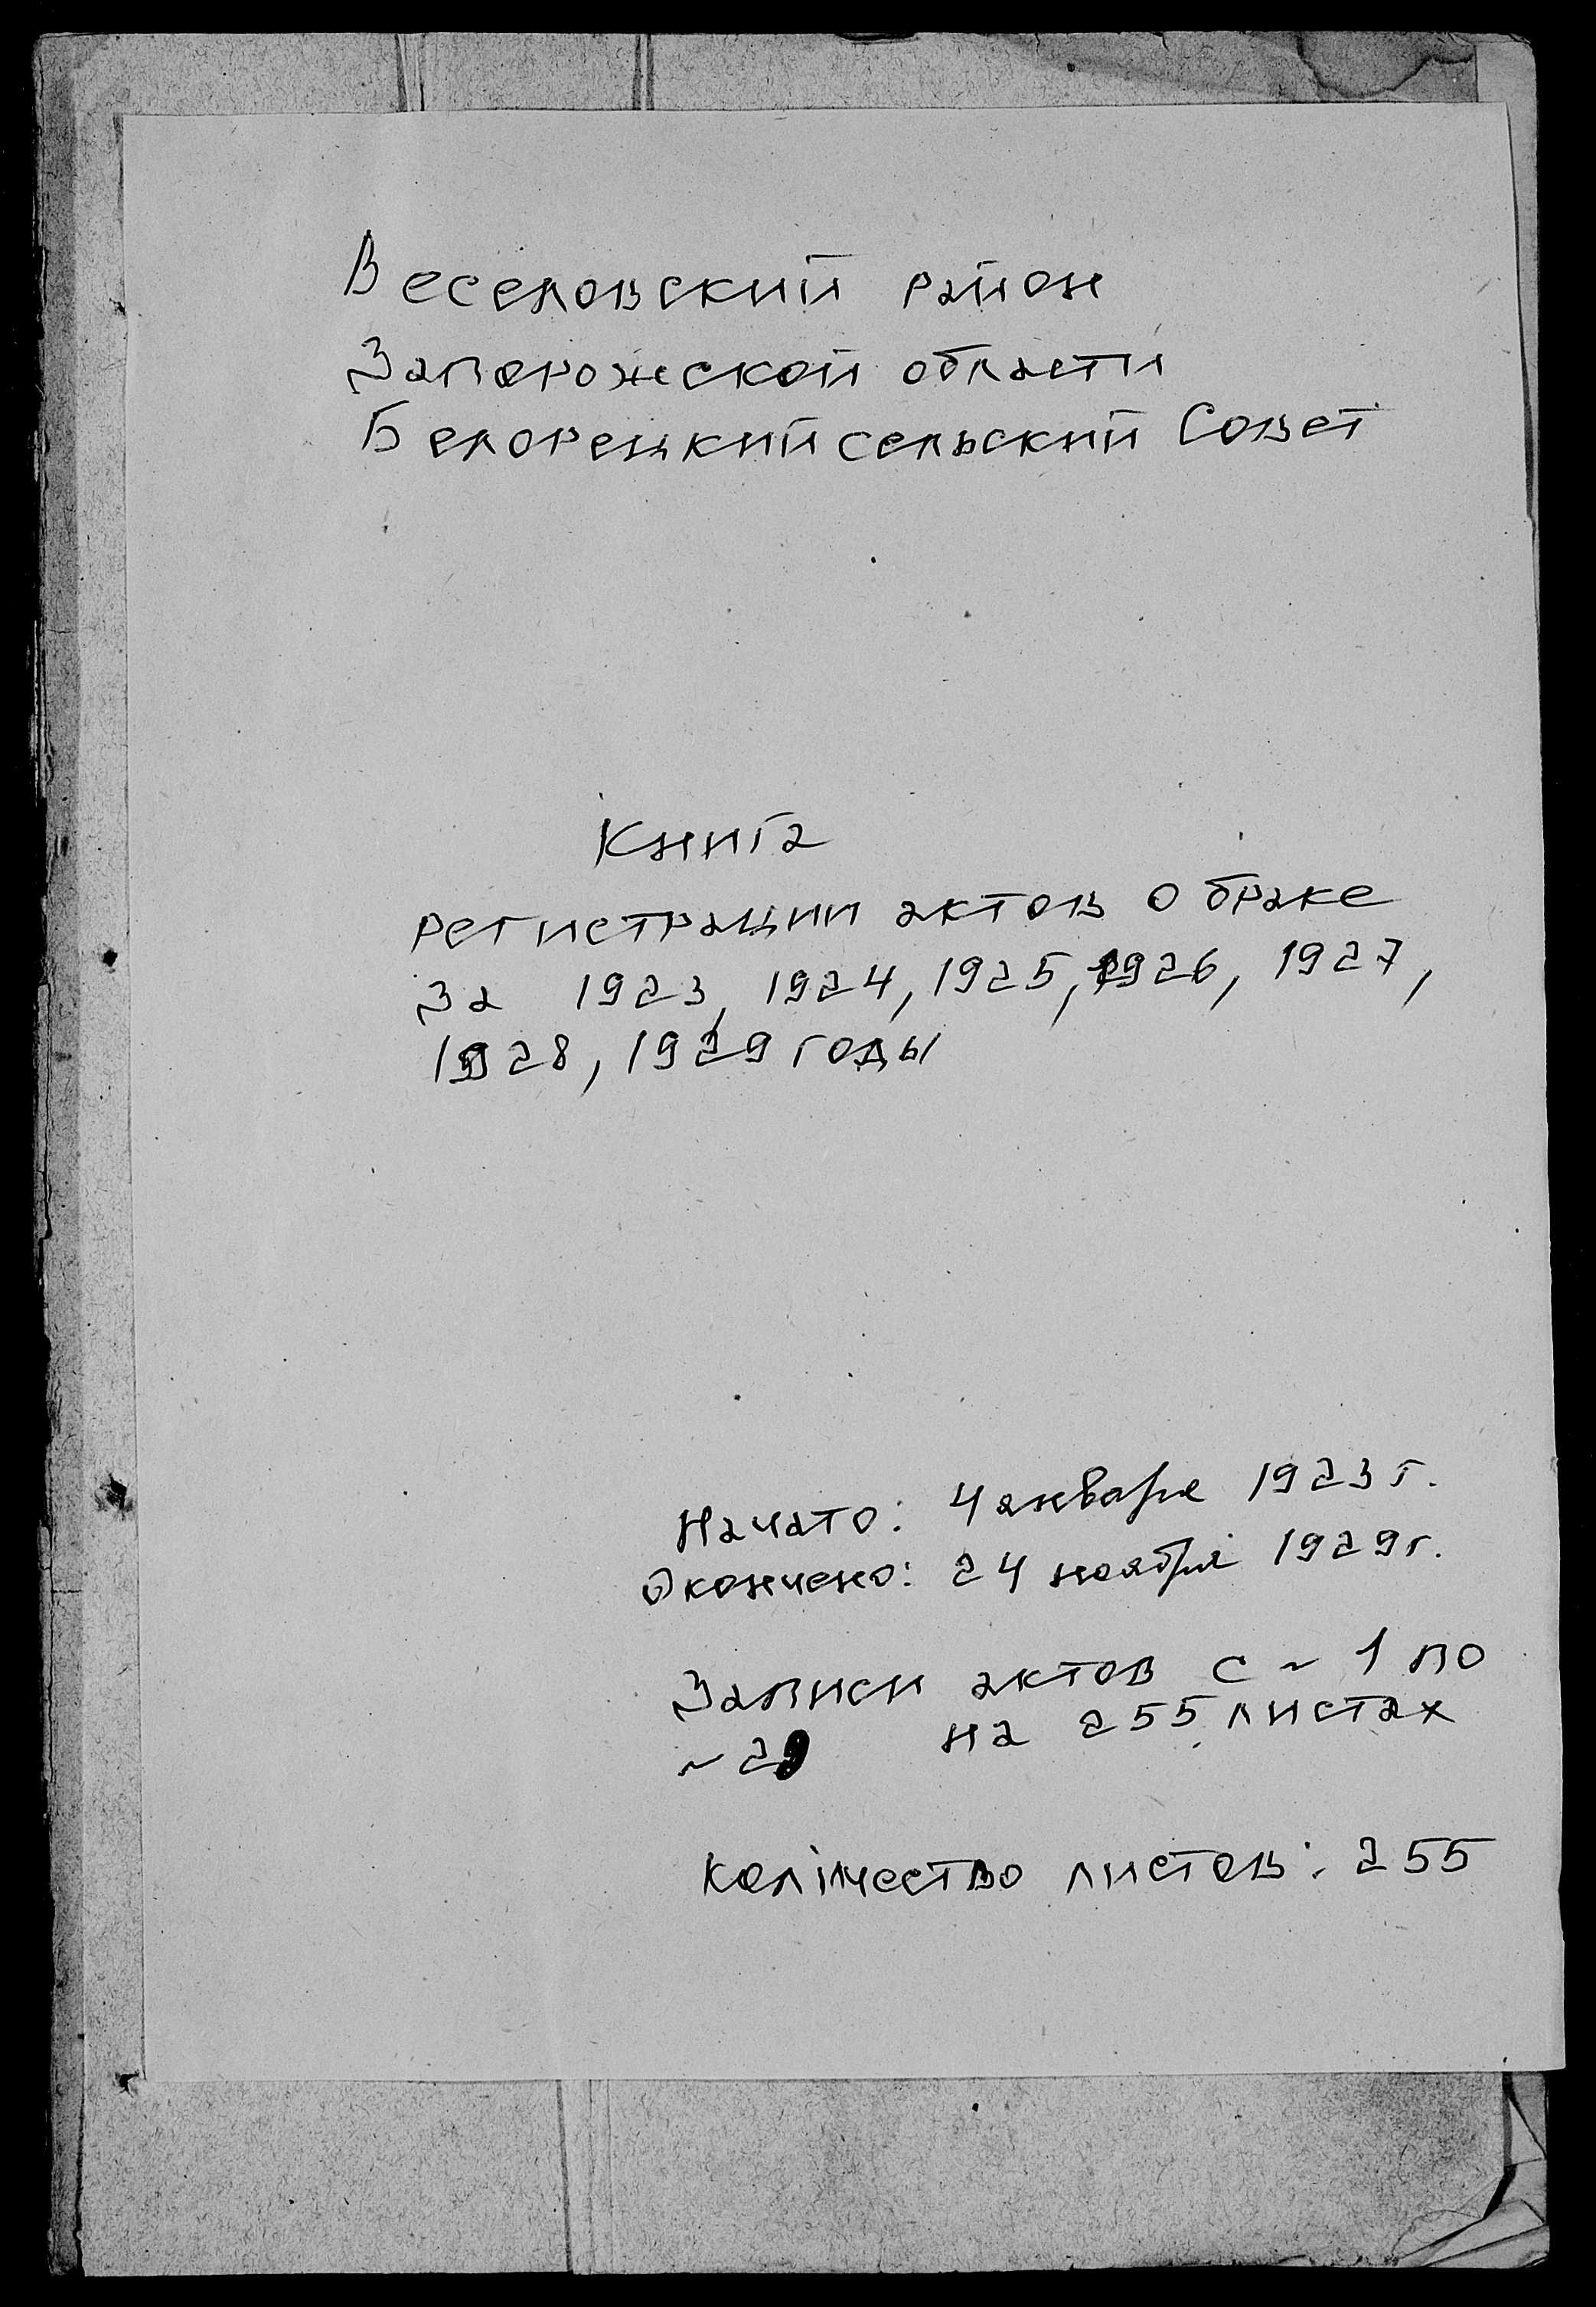 Веселовский район
Запорожской области
Белорецкий сельский Совет
Книга
регистрации актов о браке
за 1923, 1924, 1925, 1926, 1927,
1928, 1929 годы
Начато: 4 января 1923 г.
Окончено: 24 ноября 1929 г.
Записи актов с ~ 1 по
~ 29 на 255 листах
Количество листов: 255